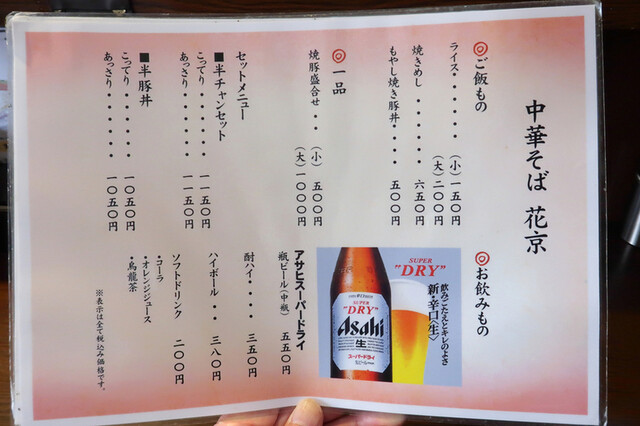 中華そば 花京
◎ご飯もの
ライス・・・・・(小)一五〇円
(大)二〇〇円
焼きめし・・・・・六五〇円
もやし焼き豚丼・・・・五〇〇円
◎一品
焼豚盛合せ・・(小)五〇〇円
(大)一〇〇〇円
セットメニュー
■半チャンセット
こってり・・・・・一一五〇円
あっさり・・・・・一一五〇円
■半豚丼
こってり・・・・・一〇五〇円
あっさり・・・・・一〇五〇円
◎お飲みもの
SUPER
"DRY"
飲みごたえとキレのよさ
新・辛口〈生〉
SUPER
"DRY"
Asahi
生
スーパードライ
アサヒスーパードライ
瓶ビール(中瓶) 五五〇円
酎ハイ・・・・三五〇円
ハイボール・・三八〇円
ソフトドリンク 二〇〇円
・コーラ
・オレンジジュース
・烏龍茶
※表示は全て税込み価格です。